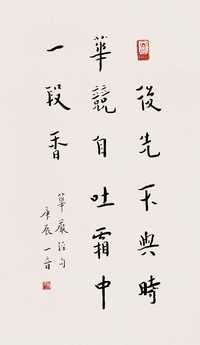 後先不與時
華競自吐霜中
一段香
華嚴 句
庚辰一音